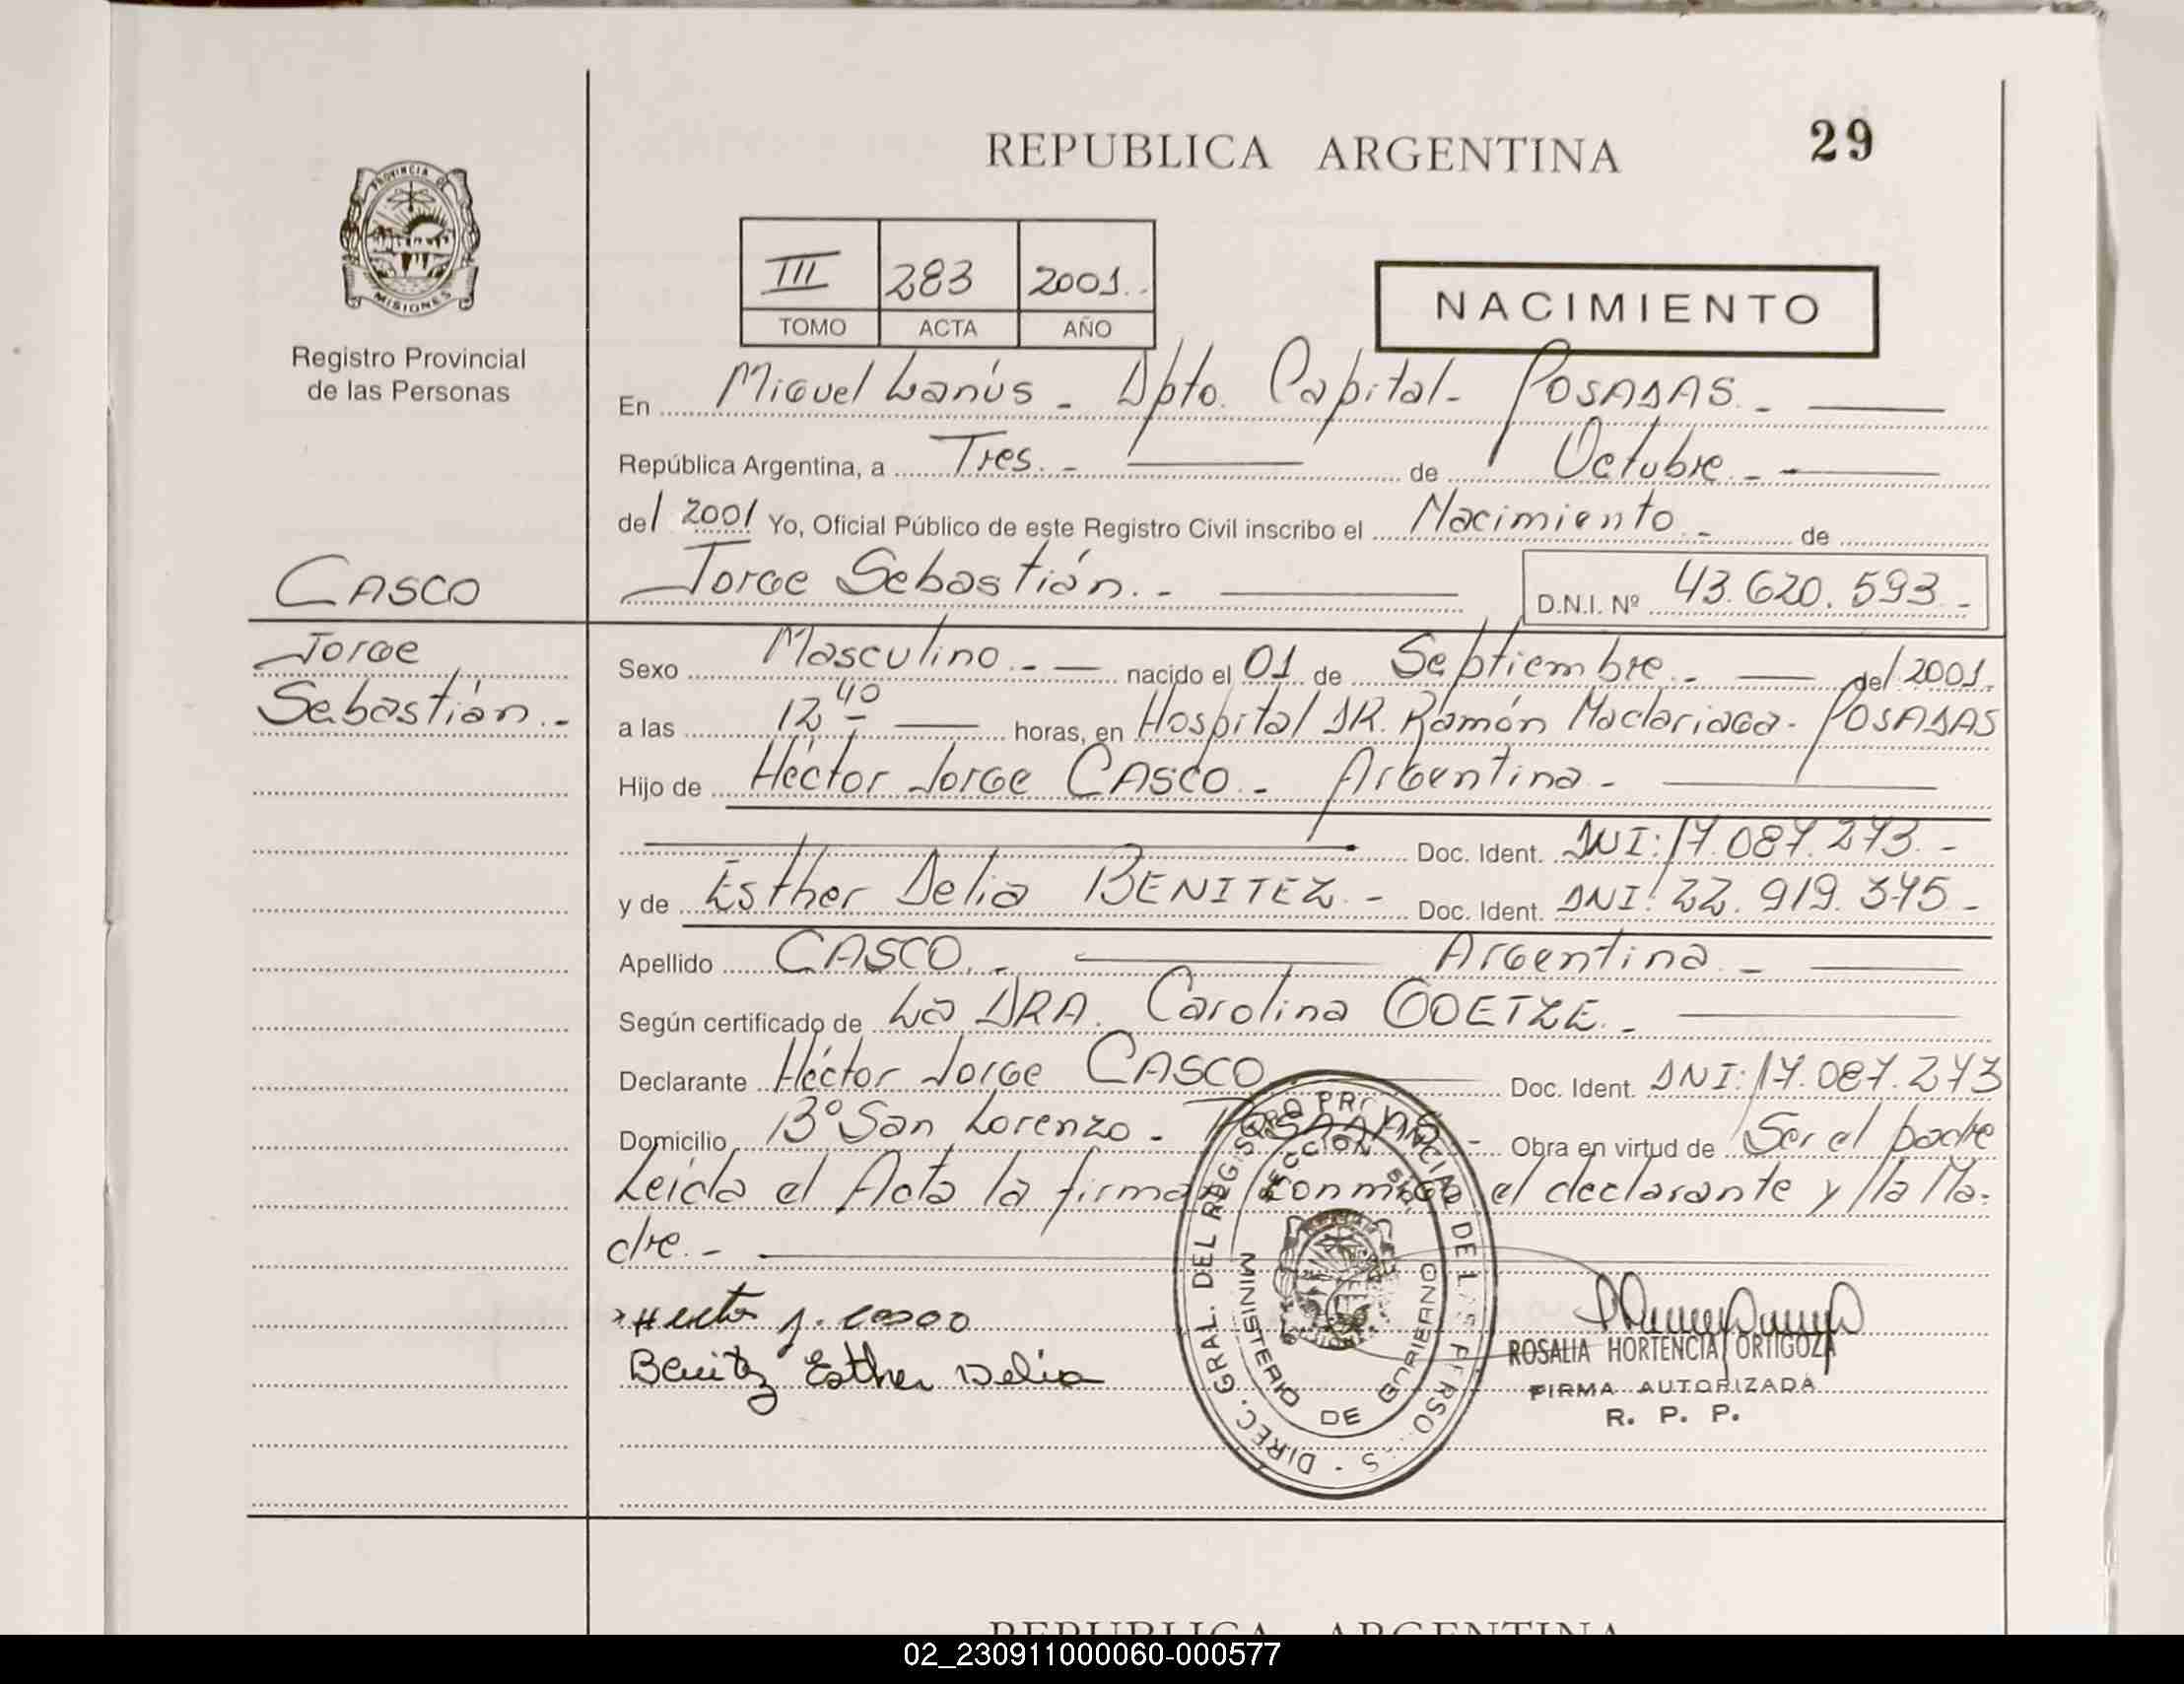 REPUBLICA ARGENTINA
29
PROVINCIA DE
MISIONES
Registro Provincial
de las Personas
III 283 2001.-
TOMO ACTA AÑO
NACIMIENTO
En Miguel Lanús - Dpto. Capital - POSADAS. -
República Argentina, a Tres. - de Octubre. -
del 2001 Yo, Oficial Público de este Registro Civil inscribo el Nacimiento. - de
CASCO
Jorge Sebastián. -
D.N.I. Nº 43.620.593 -
Jorge
Sebastián. -
Sexo Masculino. - nacido el 01 de Septiembre. - del 2001.
a las 12 40 horas, en Hospital DR. Ramón Madariaga - POSADAS
Hijo de Héctor Jorge CASCO. - Argentina -
Doc. Ident. DNI: 17.087.273. -
y de Esther Delia BENITEZ. - Doc. Ident. DNI: 22.919.375 -
Apellido CASCO. - Argentina. -
Según certificado de La DRA. Carolina GOETZE. -
Declarante Héctor Jorge CASCO Doc. Ident. DNI: 17.087.273
Domicilio Bº San Lorenzo - POSADAS - Obra en virtud de Ser el padre
Leída el Acta la firman conmigo el declarante y la Ma-
dre. -
Hector J. Casco
Benitez Esther Delia
DIREC. GRAL. DEL REGISTRO PROVINCIAL DE LAS PERSONAS
MINISTERIO DE GOBIERNO
ROSALIA HORTENCIA ORTIGOZA
FIRMA AUTORIZADA
R. P. P.
REPUBLICA ARGENTINA
02_230911000060-000577